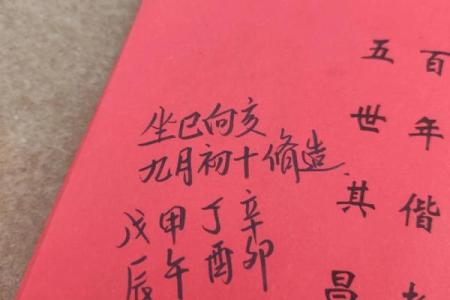 百年偕
五世其昌
坐巳向亥
九月初十脩造
戊甲丁辛
辰午酉卯